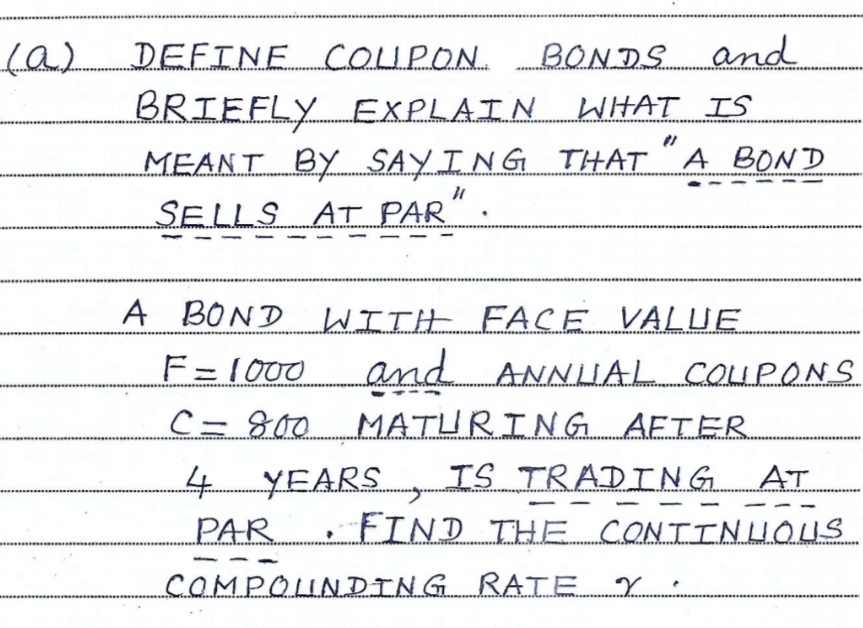 (a) DEFINE COUPON BONDS and
BRIEFLY EXPLAIN WHAT IS
MEANT BY SAYING THAT "A BOND
SELLS AT PAR".
A BOND WITH FACE VALUE
F = 1000 and ANNUAL COUPONS
C = 800 MATURING AFTER
4 YEARS, IS TRADING AT
PAR. FIND THE CONTINUOUS
COMPOUNDING RATE r.